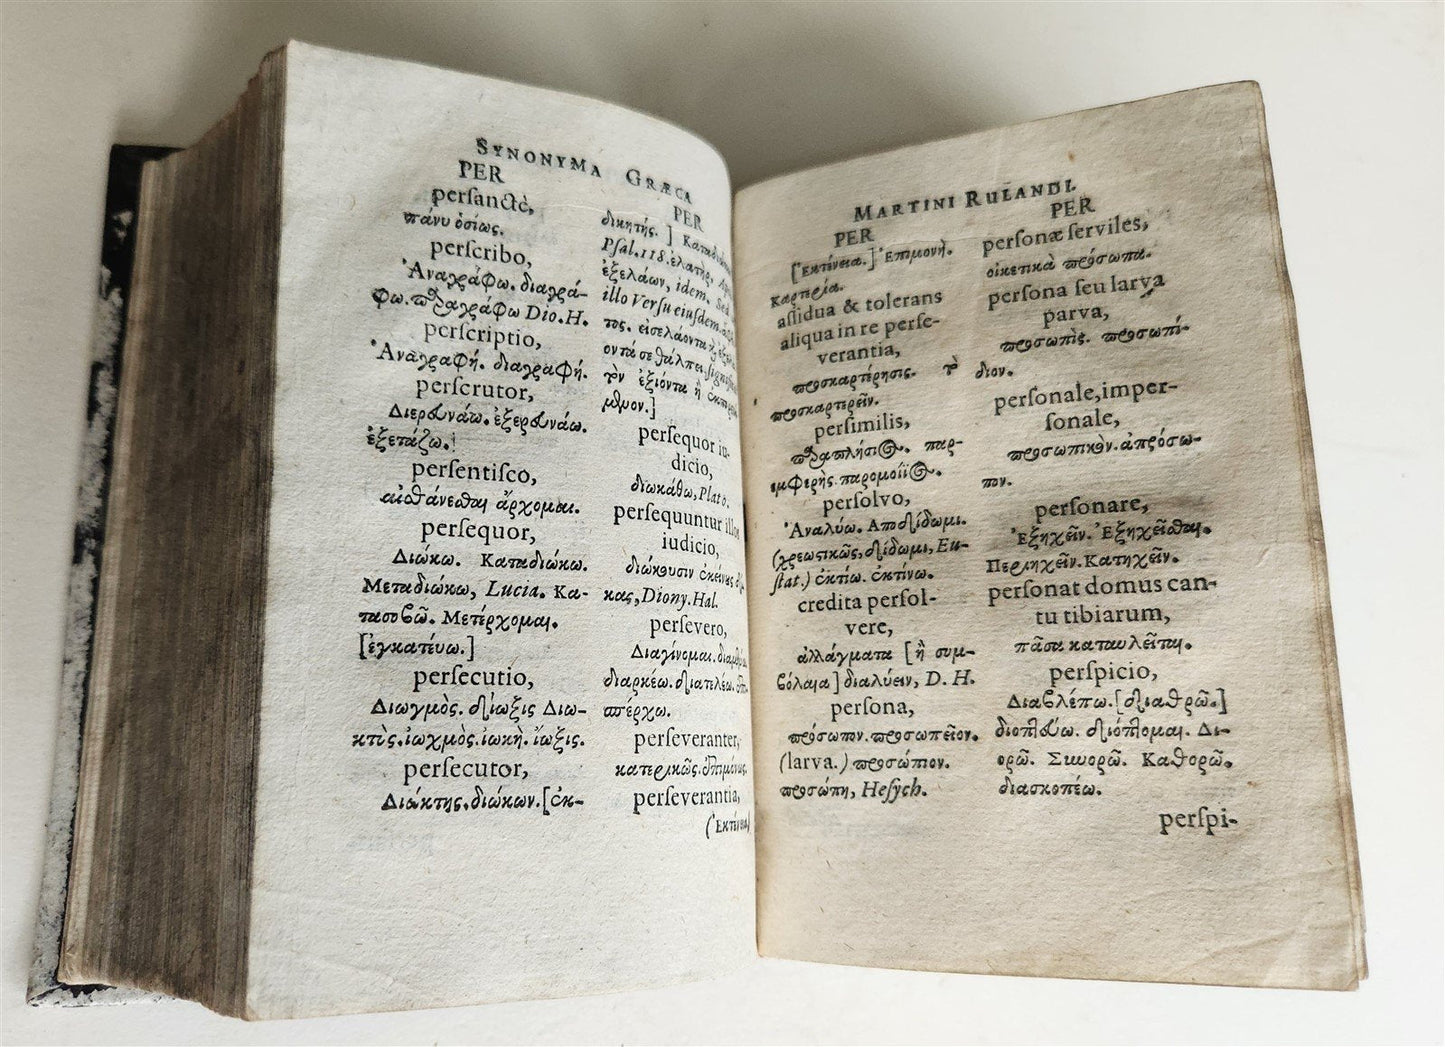 SYNONYMA GRÆCA
PER
perſanctè,
πάνυ ὁσίως.
perſcribo,
Ἀναγράφω. διαγρά-
φω. παραγράφω Dio. H.
perſcriptio,
Ἀναγραφή. διαγραφή.
perſcrutor,
Διερευνάω. ἐξερευνάω.
ἐξετάζω.
perſentiſco,
αἰσθάνεσθαι ἄρχομαι.
perſequor,
Διώκω. Καταδιώκω.
Μεταδιώκω, Lucia. Κα-
τασοβῶ. Μετέρχομαι.
[ἐγκατεύω.]
perſecutio,
Διωγμὸς. δίωξις Διω-
κτὺς. ἰωχμὸς. ἰωκὴ. ἴωξις.
perſecutor,
Διώκτης. διώκων. [ἐκ-
PER
δικητής. ]
Pſal. 118. ἐλατὴρ,
ἐξελάων, idem. Sed
illo Verſu eiuſdem
τος. εἰσελάοντα
οντά σε θάλπει.
τὸν ἐξιόντα ἢ
μενον.]
perſequor iu-
dicio,
διωκάθω, Plato.
perſequuntur illos
iudicio,
διώκουσιν ἐκείνους δί-
κας, Diony. Hal.
perſevero,
Διαγίνομαι.
διαρκέω. διατελέω.
πέρχω.
perſeveranter,
κατερικῶς. ἐπιμόνως.
perſeverantia,
(Ἐκτένεια)
MARTINI RULANDI.
PER
[Ἐκτένεια.] Ἐπιμονὴ.
Καρτερία.
aſſidua & tolerans
aliqua in re perſe-
verantia,
προσκαρτέρησις. τὸ
προσκαρτερεῖν.
perſimilis,
παραπλήσιος. παρ-
εμφερὴς. παρομοίϊος.
perſolvo,
Ἀναλύω. Αποδίδωμι.
(χρεωστικῶς, δίδωμι, Eu-
ſtat.) ἐκτίω. ἐκτίνω.
credita perſol-
vere,
ἀλλάγματα [ἢ συμ-
βόλαια] διαλύειν, D. H.
perſona,
πρόσωπον. προσωπεῖον.
(larva.) προσώπιον.
προσώπη, Heſych.
PER
perſonæ ſerviles,
οἰκετικὰ πρόσωπα.
perſona ſeu larva
parva,
προσωπὶς. προσωπί-
διον.
perſonale, imper-
ſonale,
προσωπικὸν. ἀπρόσω-
πον.
perſonare,
Ἐξηχεῖν. Ἐξηχεῖσθαι.
Περιηχεῖν. Κατηχεῖν.
perſonat domus can-
tu tibiarum,
πᾶσα καταυλεῖται.
perſpicio,
Διαβλέπω. [διαθρῶ.]
διοπτεύω. διόπτομαι. Δι-
ορῶ. Συνορῶ. Καθορῶ.
διασκοπέω.
perſpi-